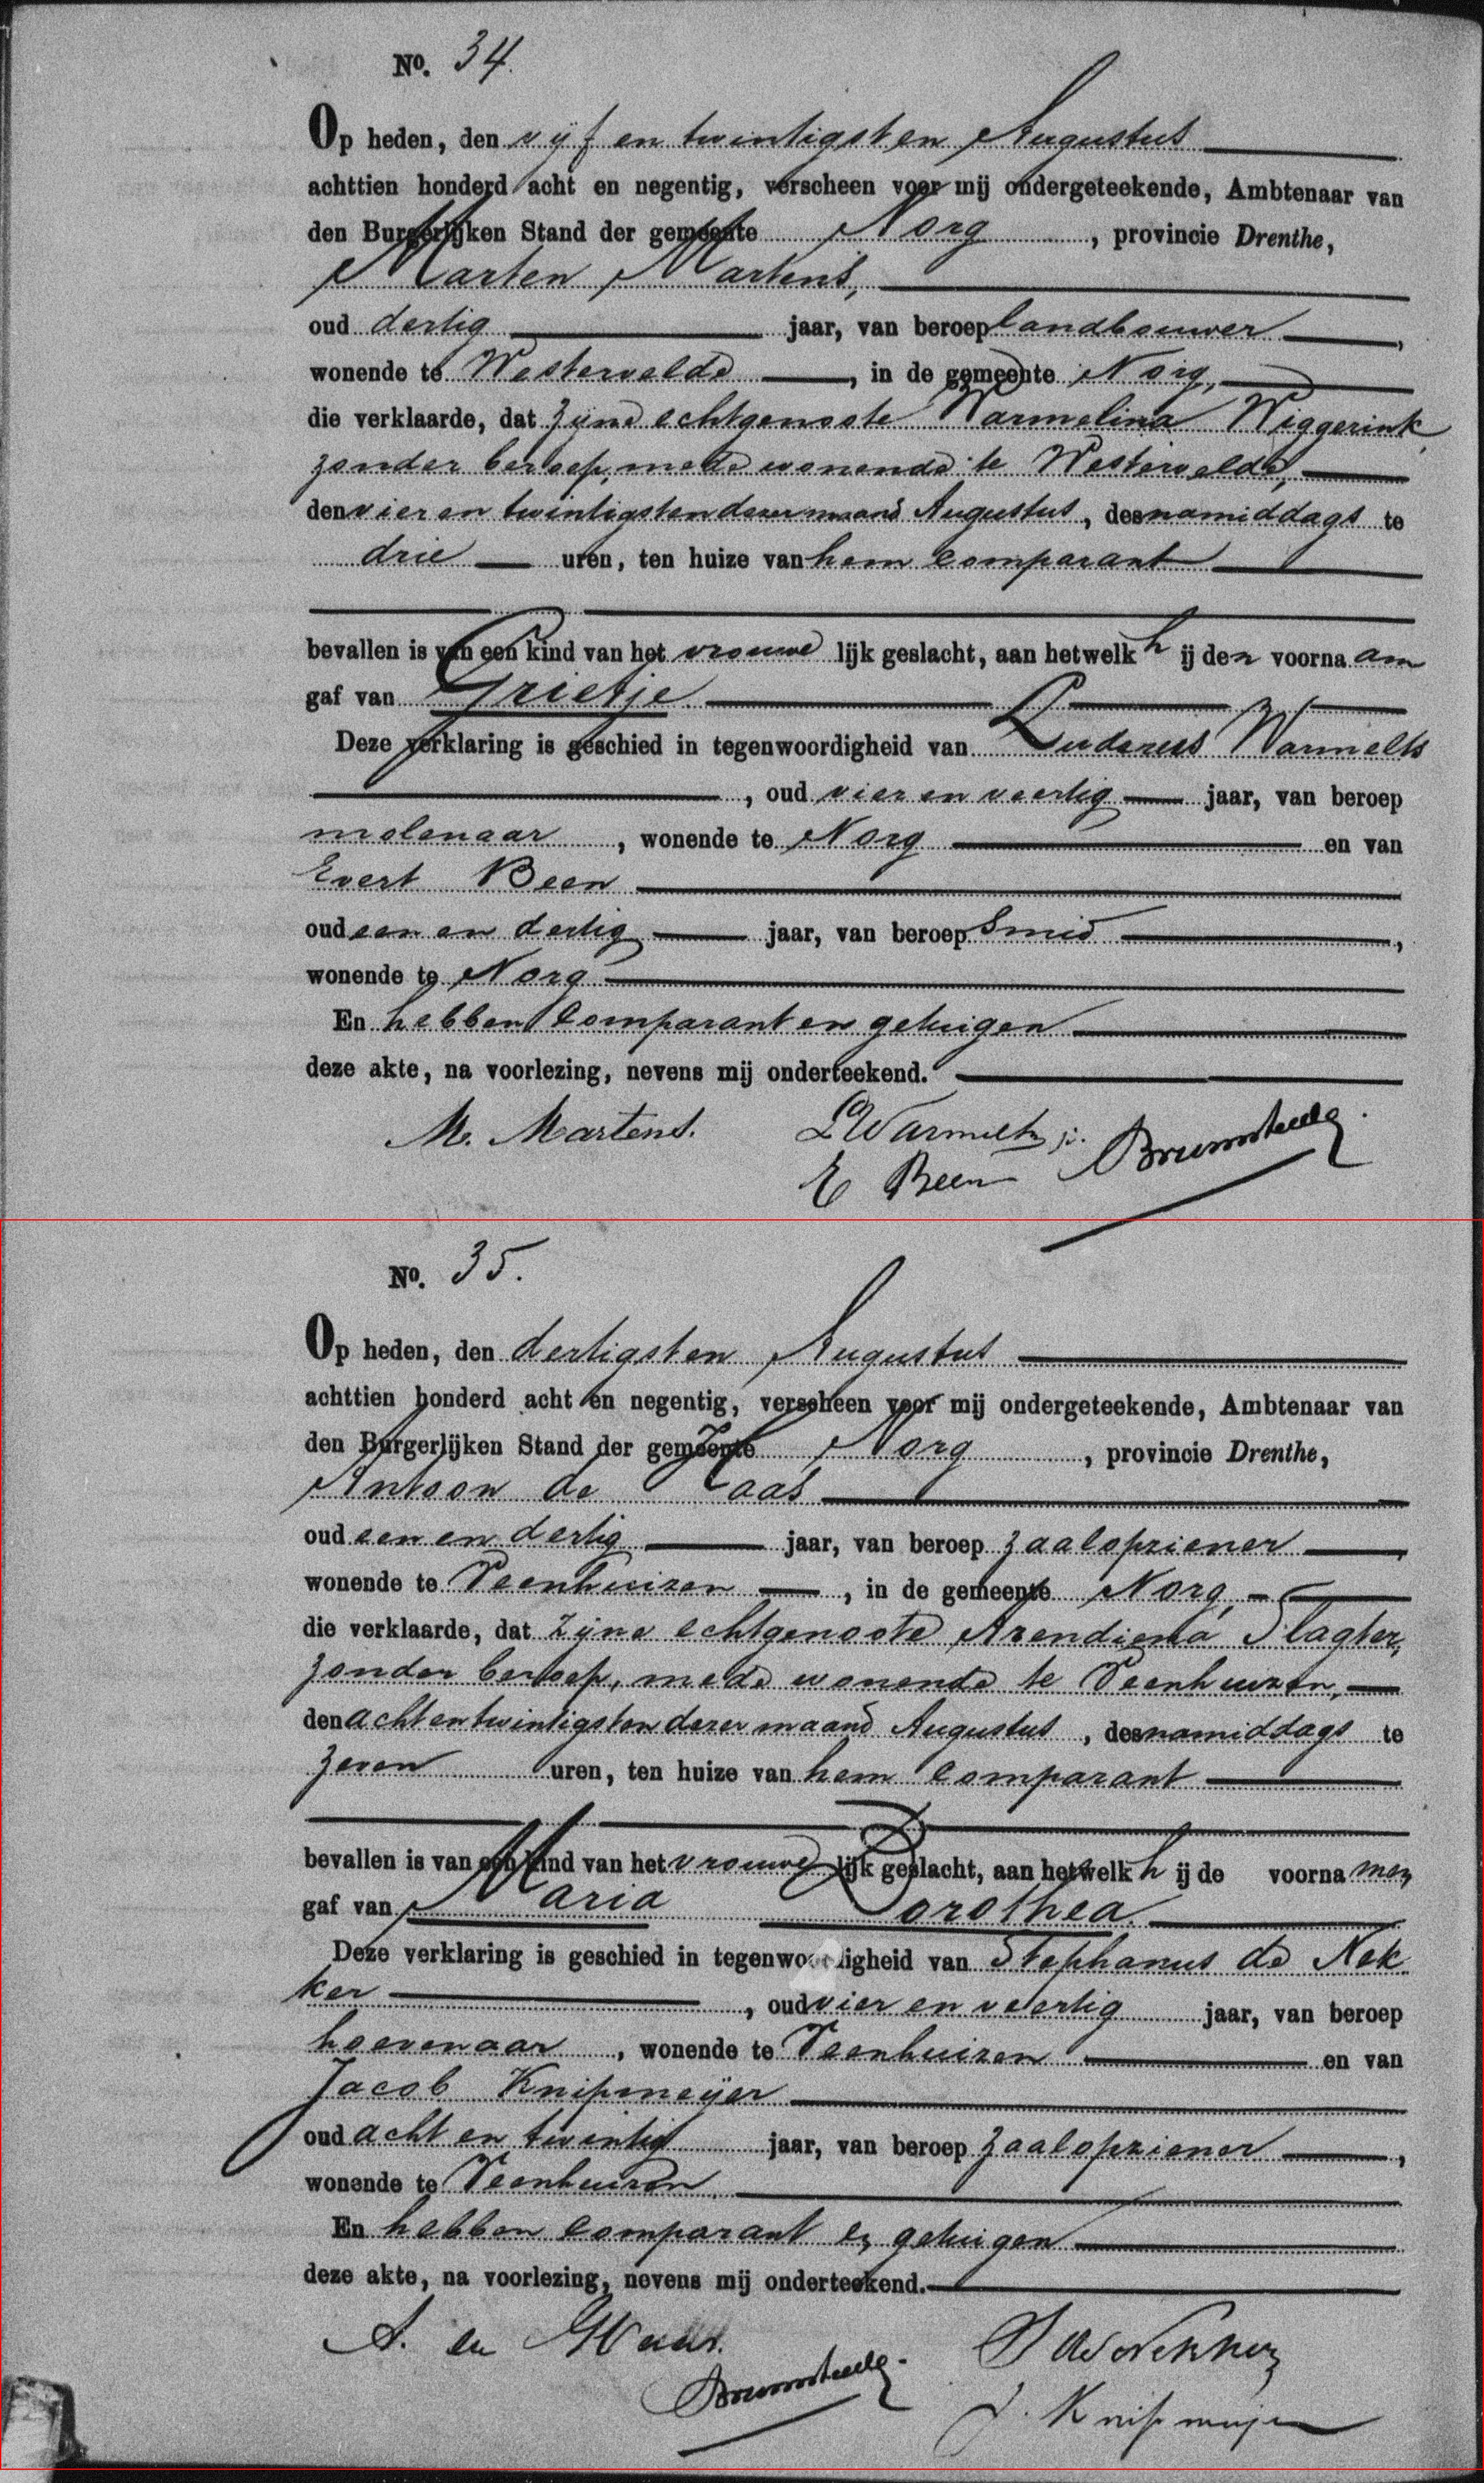 No. 34.
Op heden, den vijf en twintigsten Augustus
achttien honderd acht en negentig, verscheen voor mij ondergeteekende, Ambtenaar van
den Burgerlijken Stand der gemeente Norg, provincie Drenthe,
Marten Martens,
oud dertig jaar, van beroep landbouwer,
wonende te Westervelde, in de gemeente Norg,
die verklaarde, dat zijne echtgenoote Warmelina Wiggerink
zonder beroep, mede wonende te Westervelde,
den vier en twintigsten dezer maand Augustus, des namiddags te
drie uren, ten huize van hem comparant
bevallen is van een kind van het vrouwelijk geslacht, aan hetwelk hij den voornaam
gaf van Grietje.
Deze verklaring is geschied in tegenwoordigheid van Luderus Warmelts
, oud vier en veertig jaar, van beroep
molenaar, wonende te Norg en van
Evert Been
oud een en dertig jaar, van beroep Smid,
wonende te Norg
En hebben comparant en getuigen
deze akte, na voorlezing, nevens mij onderteekend.
M. Martens. L Warmelts jr.
E Been
No. 35.
Op heden, den dertigsten Augustus
achttien honderd acht en negentig, verscheen voor mij ondergeteekende, Ambtenaar van
den Burgerlijken Stand der gemeente Norg, provincie Drenthe,
Antoon de Haas
oud een en dertig jaar, van beroep zaalopziener,
wonende te Veenhuizen, in de gemeente Norg,
die verklaarde, dat zijne echtgenoote Arendiena Slagter,
zonder beroep, mede wonende te Veenhuizen,
den acht en twintigsten dezer maand Augustus, des namiddags te
zeven uren, ten huize van hem comparant
bevallen is van een kind van het vrouwelijk geslacht, aan hetwelk hij de voornamen
gaf van Maria Dorothea.
Deze verklaring is geschied in tegenwoordigheid van Stephanus de Nek
ker, oud vier en veertig jaar, van beroep
hoevenaar, wonende te Veenhuizen en van
Jacob Knipmeijer
oud acht en twintig jaar, van beroep zaalopziener,
wonende te Veenhuizen.
En hebben comparant en getuigen
deze akte, na voorlezing, nevens mij onderteekend.
A. de Haas. S de Nekker
J. Knipmeijer